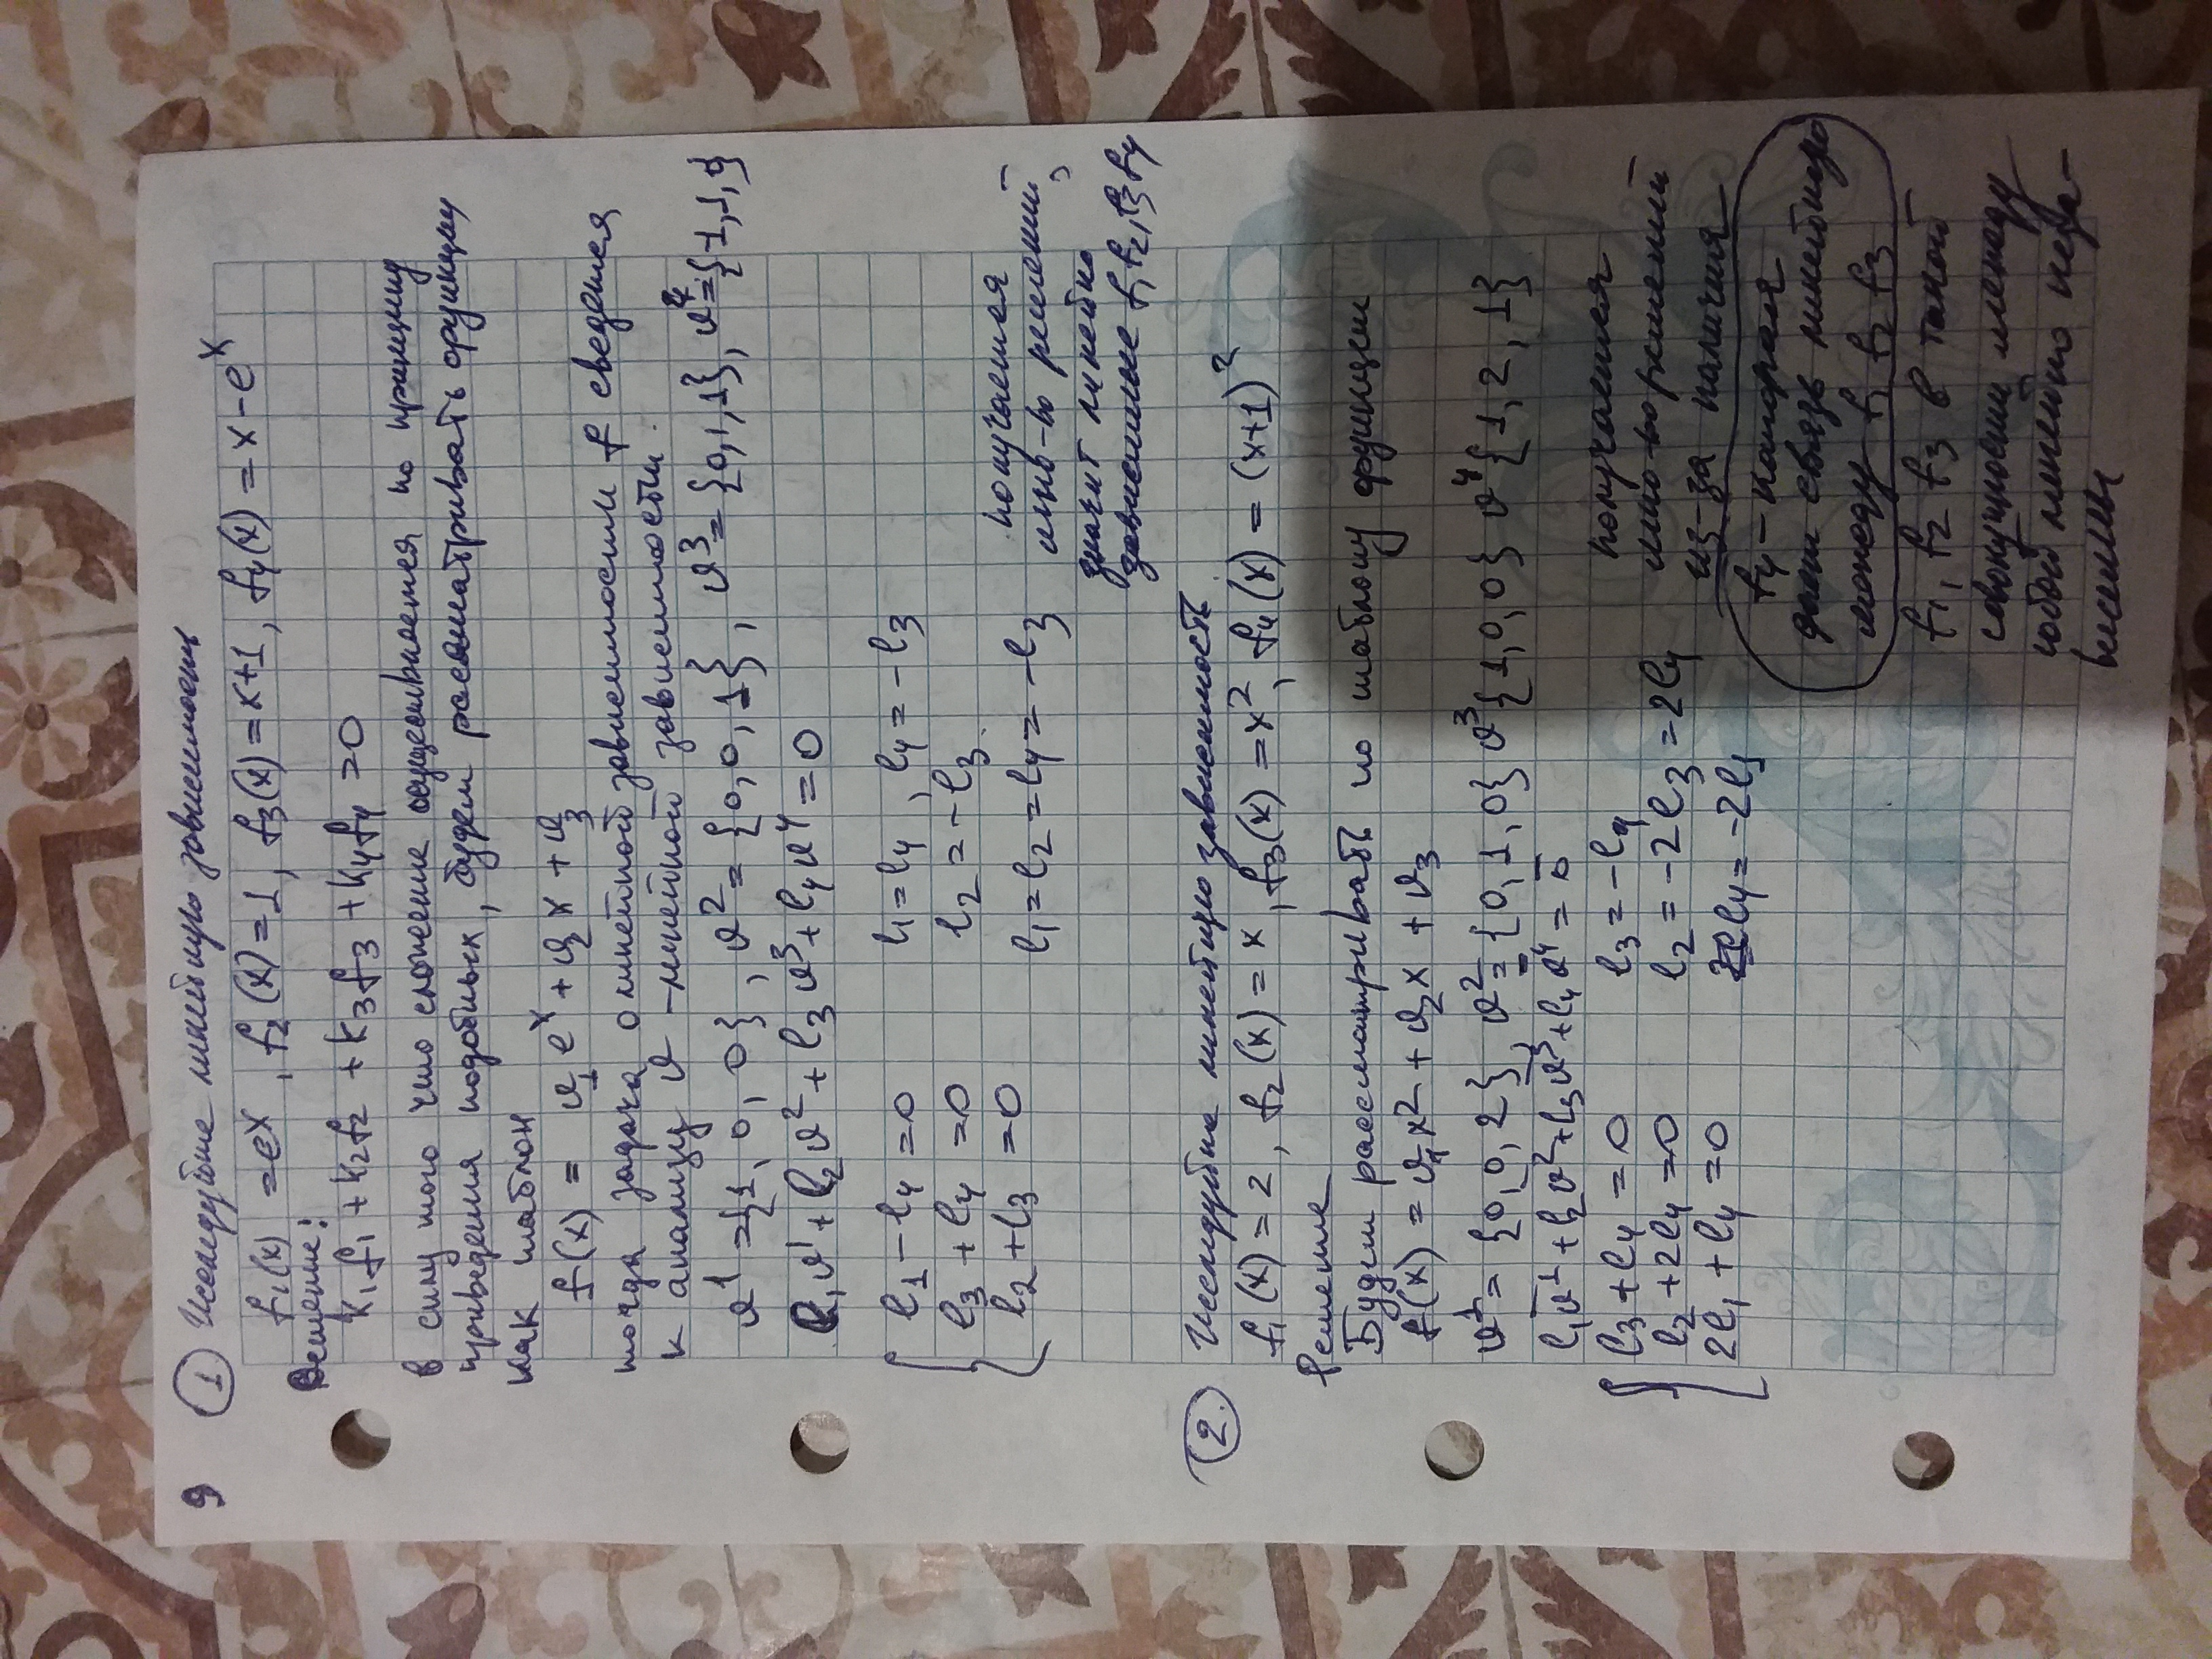 9
① Исследуйте линейную зависимость
f₁(x) = eˣ, f₂(x) = 1, f₃(x) = x+1, f₄(x) = x − eˣ
Решение:
k₁f₁ + k₂f₂ + k₃f₃ + k₄f₄ = 0
в силу того что сложение осуществляется по принципу
приведения подобных, будем рассматривать функции
как шаблон
f(x) = v₁eˣ + v₂x + v₃
тогда задача о линейной зависимости f сведется
к анализу v – линейной зависимости.
v¹ = {1, 0, 0}, v² = {0, 0, 1}, v³ = {0, 1, 1}, v⁴ = {-1, 1, 0}
l₁v¹ + l₂v² + l₃v³ + l₄v⁴ = 0
l₁ − l₄ = 0 l₁ = l₄, l₄ = −l₃
l₃ + l₄ = 0 l₂ = −l₃
l₂ + l₃ = 0 l₁ = l₂ = l₄ = −l₃
получается
мно-во решений,
значит линейно
зависимые f₁ f₂, f₃ f₄
② Исследуйте линейную зависимость
f₁(x) = 2, f₂(x) = x, f₃(x) = x², f₄(x) = (x+1)²
Решение
Будем рассматривать по шаблону функции
f(x) = v₁x² + v₂x + v₃
v¹ = {0, 0, 2}, v² = {0, 1, 0} v³ {1, 0, 0} v⁴ {1, 2, 1}
l₁v̄¹ + l₂v̄² + l₃v̄³ + l₄v̄⁴ = 0̄
l₃ + l₄ = 0 l₃ = −l₄
l₂ + 2l₄ = 0 l₂ = −2l₃ = 2l₄
2l₁ + l₄ = 0 l₄ = −2l₁
получается
мно-во решений
из-за наличия
f₄ – которая
дает связь линейную
между f₁ f₂ f₃
f₁, f₂ f₃ в такой
совокупности между
собой линейно неза-
висимы